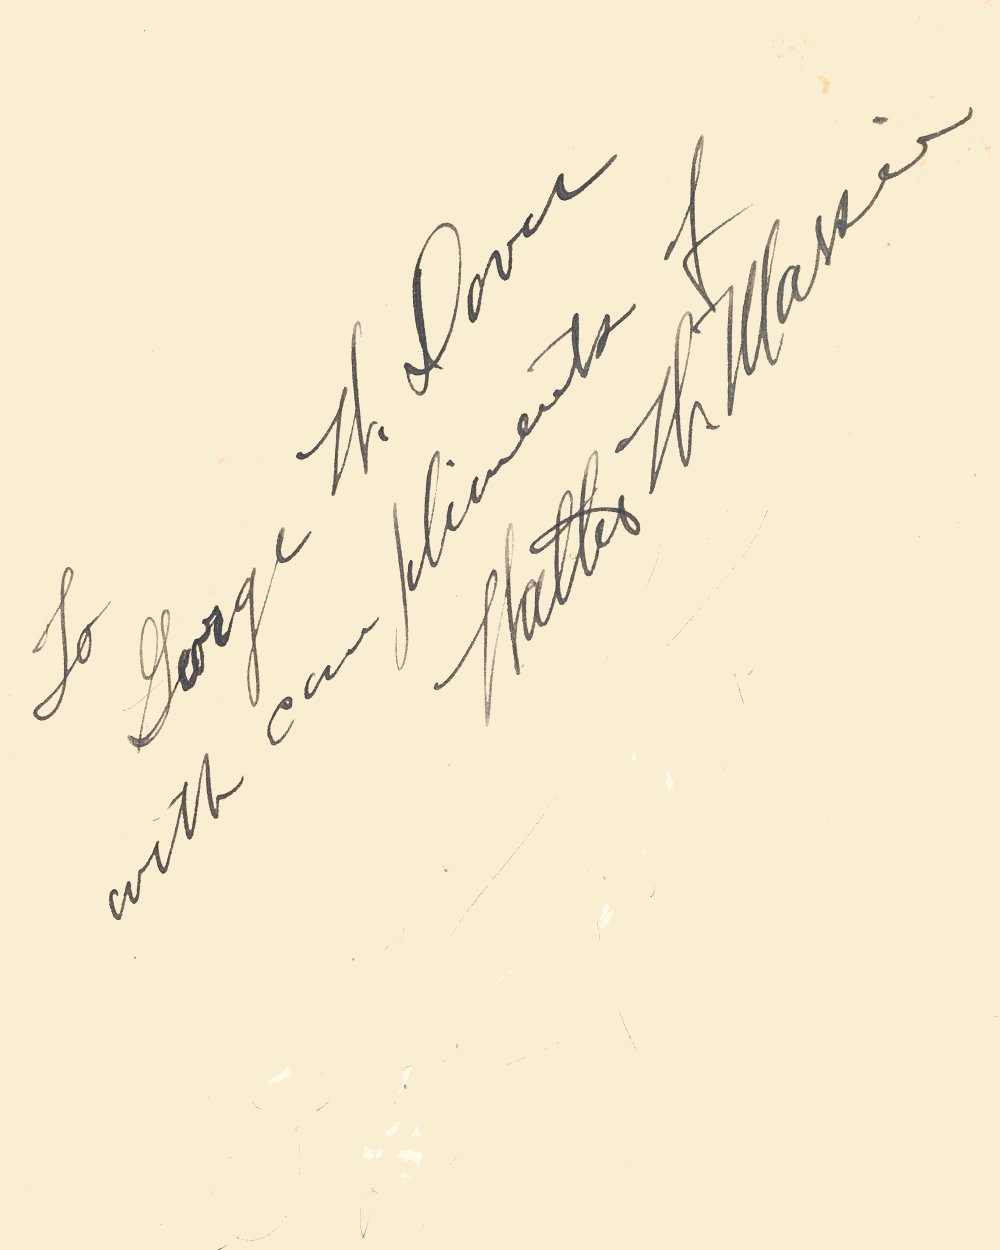 To George W. Dover
with compliments of
Walter W. Massie